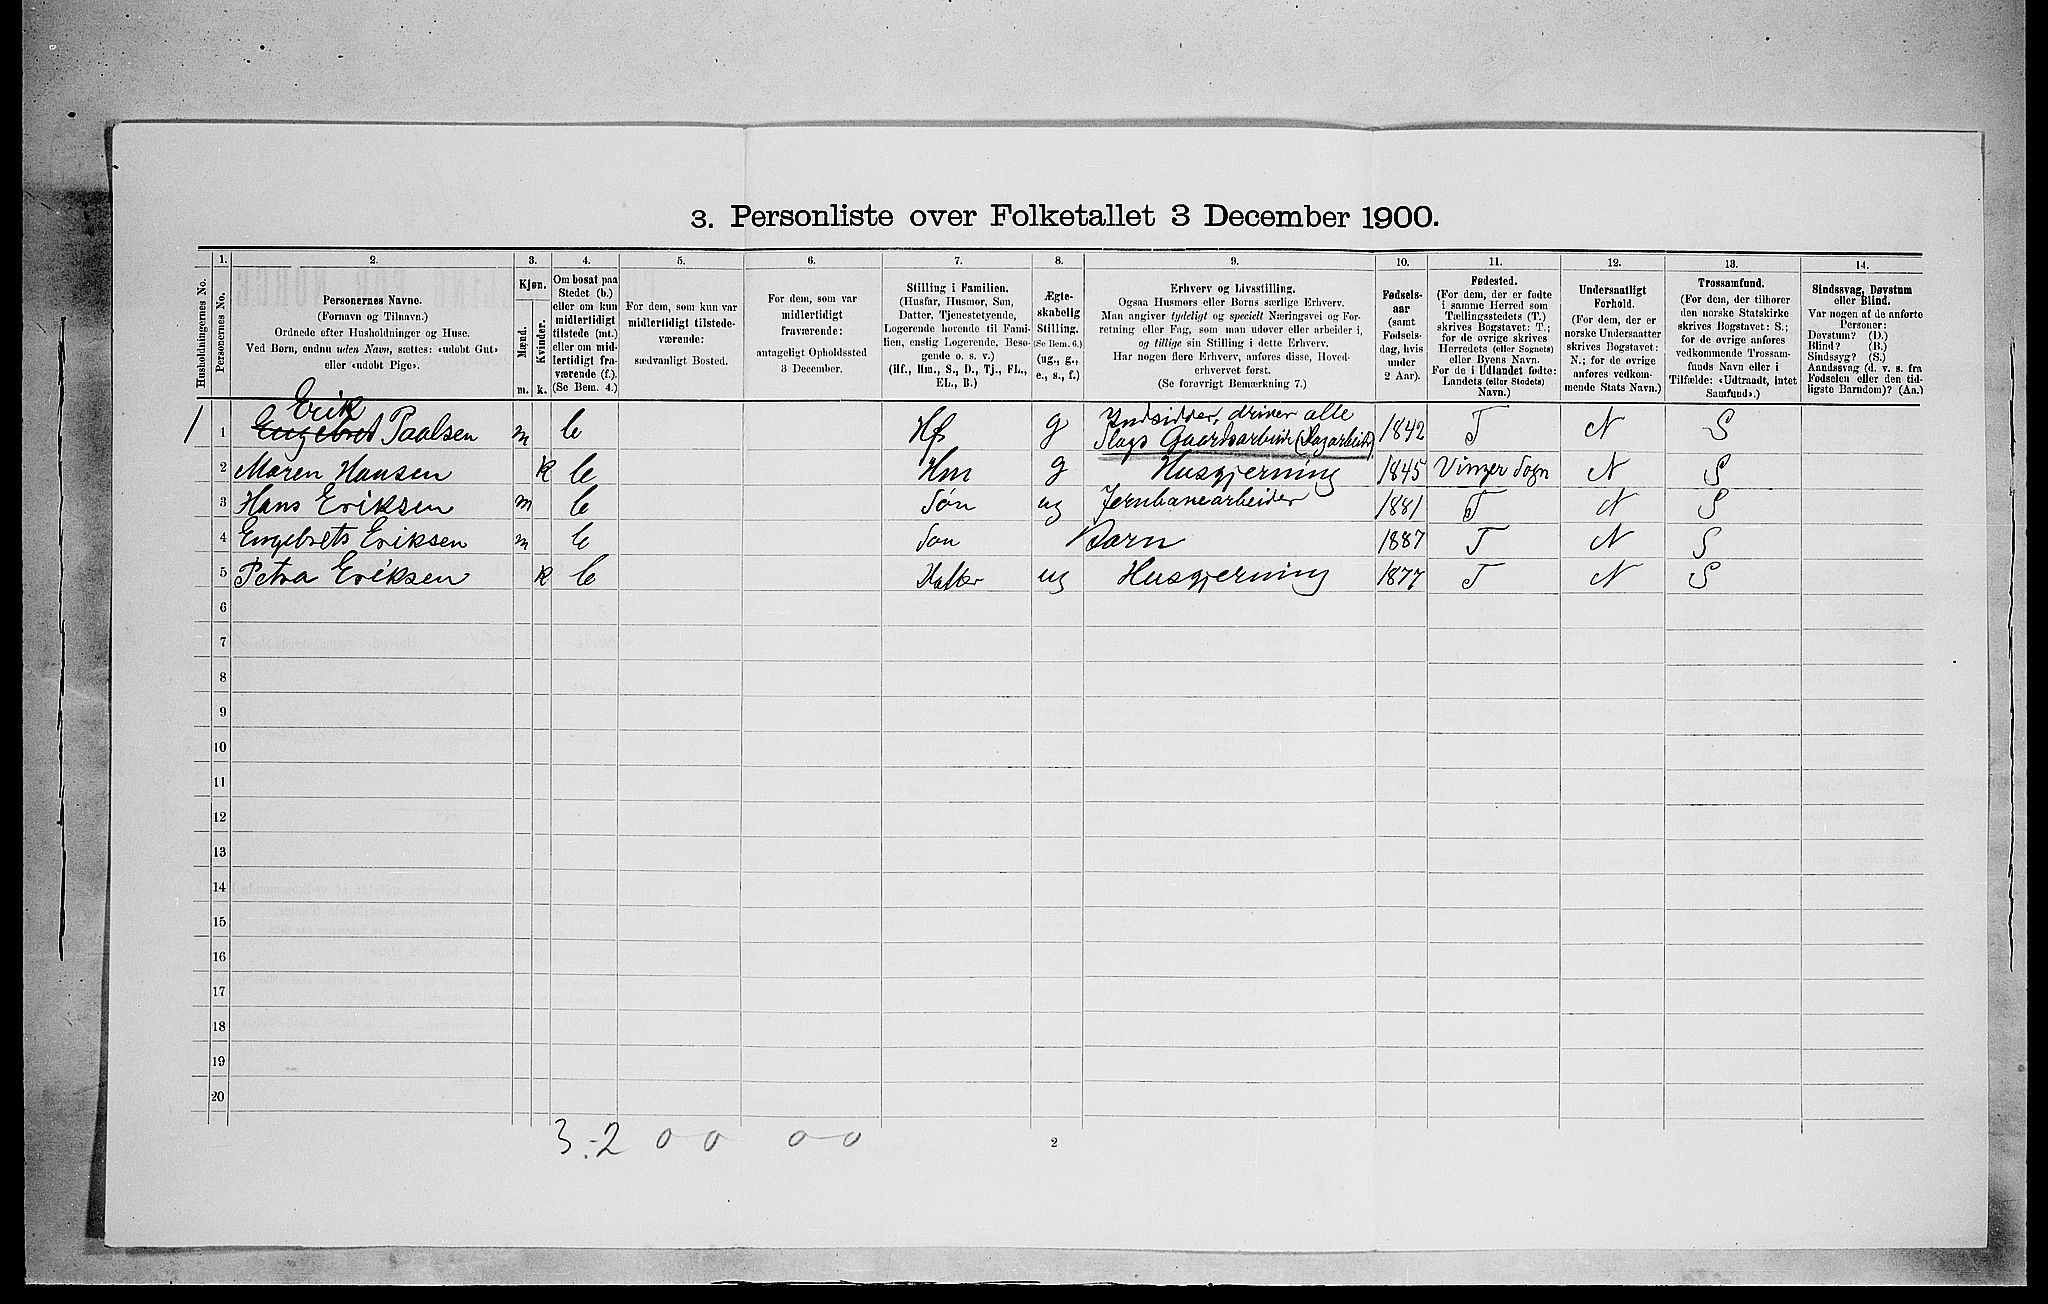 3. Personliste over Folketallet 3 December 1900.
1. 2. 3. 4. 5. 6. 7. 8. 9. 10. 11. 12. 13. 14.
Husholdningernes No.
Personernes No.
Personernes Navne.
(Fornavn og Tilnavn.)
Ordnede efter Husholdninger og Huse.
Ved Børn, endnu uden Navn, sættes: «udøbt Gut»
eller «udøbt Pige».
Kjøn.
Mænd.
Kvinder.
m. k.
Om bosat paa
Stedet (b.)
eller om kun
midlertidigt
tilstede (mt.)
eller om mid-
lertidigt fra-
værende (f.).
(Se Bem. 4.)
For dem, som kun var
midlertidigt tilstede-
værende:
sædvanligt Bosted.
For dem, som var
midlertidigt
fraværende:
antageligt Opholdssted
3 December.
Stilling i Familien.
(Husfar, Husmor, Søn,
Datter, Tjenestetyende,
Logerende hørende til Fami-
lien, enslig Logerende, Besø-
gende o. s. v.)
(Hf., Hm., S., D., Tj., FL.,
EL., B.)
Ægte-
skabelig
Stilling.
(Se Bem. 6.)
(ug., g.,
e., s., f.)
Erhverv og Livsstilling.
Ogsaa Husmors eller Børns særlige Erhverv.
Man angiver tydeligt og specielt Næringsvei og For-
retning eller Fag, som man udøver eller arbeider i,
og tillige sin Stilling i dette Erhverv.
Har nogen flere Erhverv, anføres disse, Hoved-
erhvervet først.
(Se forøvrigt Bemærkning 7.)
Fødsels-
aar
(samt
Fødsels-
dag, hvis
under
2 Aar).
Fødested.
(For dem, der er fødte
i samme Herred som
Tællingsstedets (T.)
skrives Bogstavet: T.;
for de øvrige skrives
Herredets (eller Sognets)
eller Byens Navn.
For de i Udlandet fødte:
Landets (eller Stedets)
Navn.)
Undersaatligt
Forhold.
(For dem, der er
norske Undersaatter
skrives Bogstavet:
N.; for de øvrige
anføres vedkom-
mende Stats Navn.)
Trossamfund.
(For dem, der tilhører
den norske Statskirke
skrives Bogstavet: S.;
for de øvrige anføres
vedkommende Trossam-
funds Navn eller i
Tilfælde: «Udtraadt, intet
Samfund».)
Sindssvag, Døvstum
eller Blind.
Var nogen af de anførte
Personer:
Døvstum? (D.)
Blind? (B.)
Sindssyg? (S.)
Aandssvag (d. v. s. fra
Fødselen eller den tid-
ligste Barndom)? (Aa.)
Erik
1 1 Engebret Paalsen m b Hf g Indsidder, driver alle Slags Gaardsarbeide (Dagarbeide) 1842 T N S
2 Maren Hansen k b Hm g Husgjerning 1845 Vinger Sogn N S
3 Hans Eriksen m b Søn ug Jernbanearbeider 1881 T N S
4 Engebrets Eriksen m b Søn Barn 1887 T N S
5 Petra Eriksen k b Datter ug Husgjerning 1877 T N S
6
7
8
9
10
11
12
13
14
15
16
17
18
19
20
3-2 0 0 0-0
2